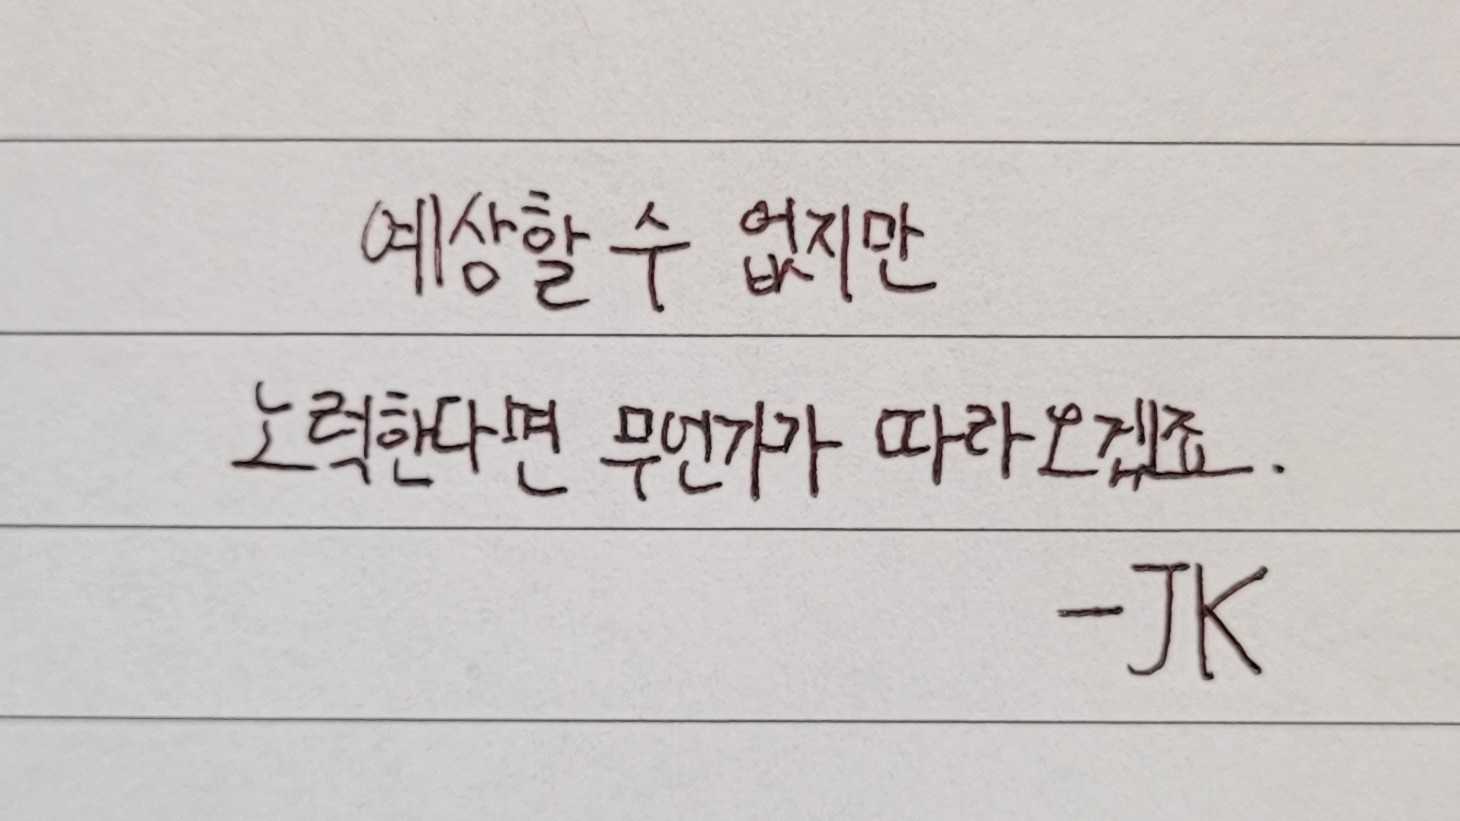 예상할 수 없지만
노력한다면 무언가가 따라오겠죠.
-JK